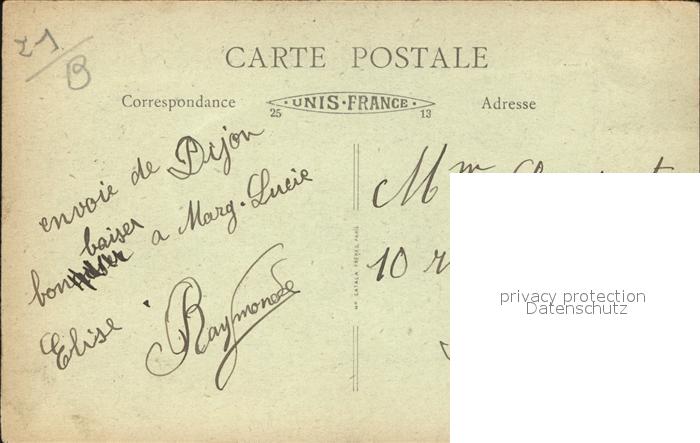 21
B
CARTE POSTALE
Correspondance
UNIS-FRANCE
25
13
Adresse
envoie de Dijon
baiser
bon a Marg. Lucie
Elise Raymonde
Mme
10 r
privacy protection
Datenschutz